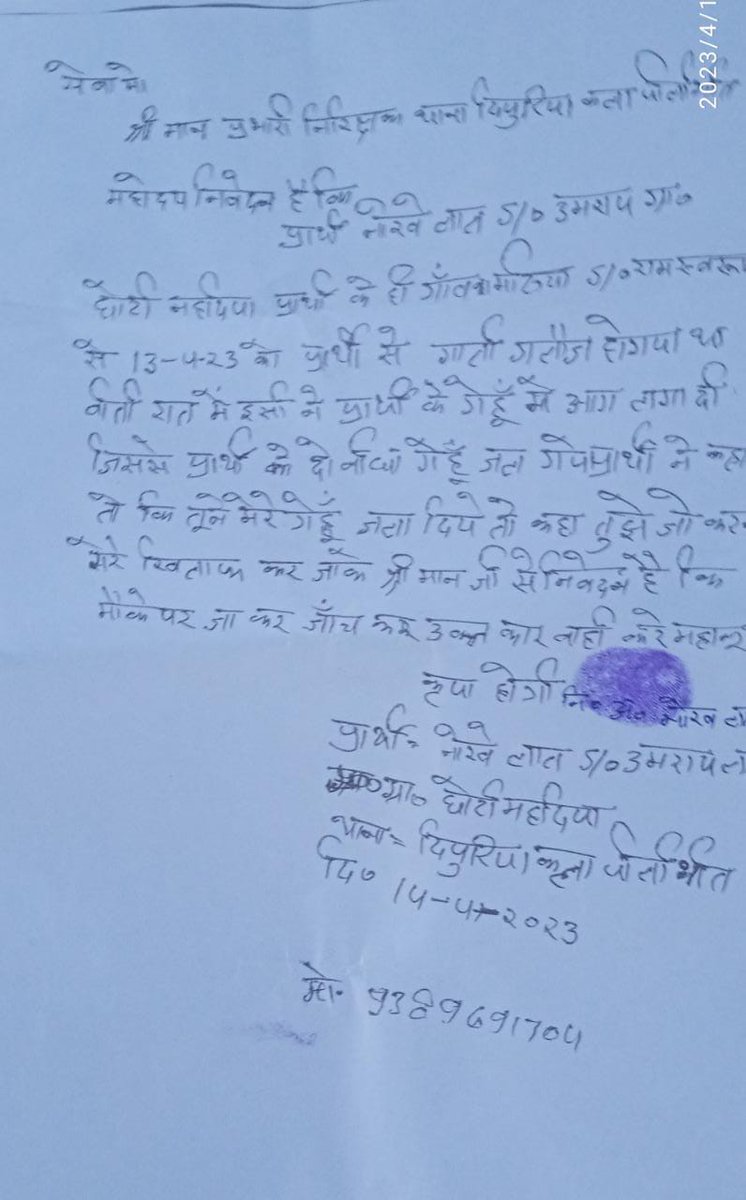 2023/4/1
सेवा मे।
श्री मान प्रभारी निरिक्षक थाना दियुरिया कला पीलीभीत
महोदय निवेदन है कि
प्रार्थी नोखे लाल S/0 उमराय ग्रा०
छोटी महदिया प्रार्थी के ही गाँव का S/० रामस्वरू
से 13-4-23 को प्रार्थी से गाली गलौज होगया था
वीती रात में इसी ने प्रार्थी के गेहूँ मे आग लागा दी
जिससे प्रार्थी के दो वीघा गेहूँ जल गये प्रार्थी ने कहा
तो कि तूने मेरे गेहूँ जला दिये तो कहा तुझे जो कर
मेरे खिलाफ कर जाके श्री मान जी से निवेदन है कि
मौके पर जा कर जाँच कर उक्त कार वाही करे महान
कृपा होगी नि० अ० नोखे ला
प्रार्थी = नोखे लाल S/० उमराय ल
ग्रा० छोटी महदिया
थाना = दियुरिया कला पीलीभीत
दि० 14-4-2023
मो. 9389691704